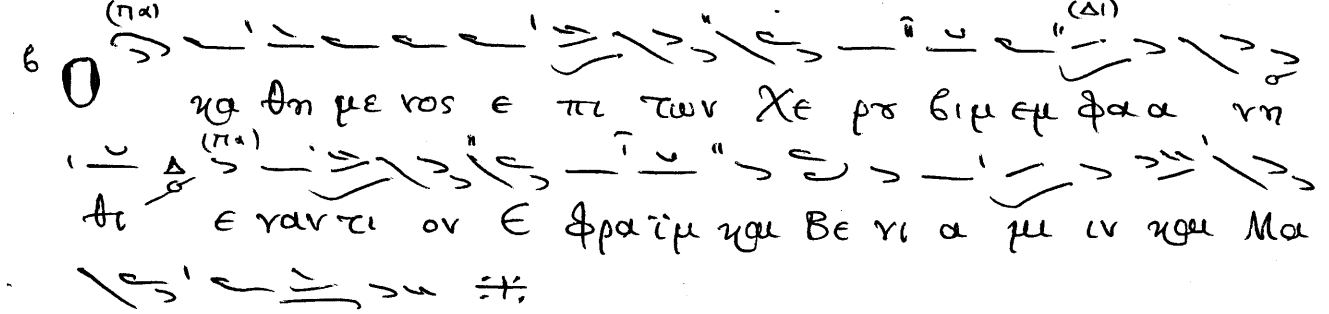 (Πα) (Δι)
β Ο κα θη με νος ε πι των Χε ρου βιμ εμ φα α νη
(Πα)
θι ε ναν τι ον Ε φρα ϊμ και Βε νι α μι ιν και Μα